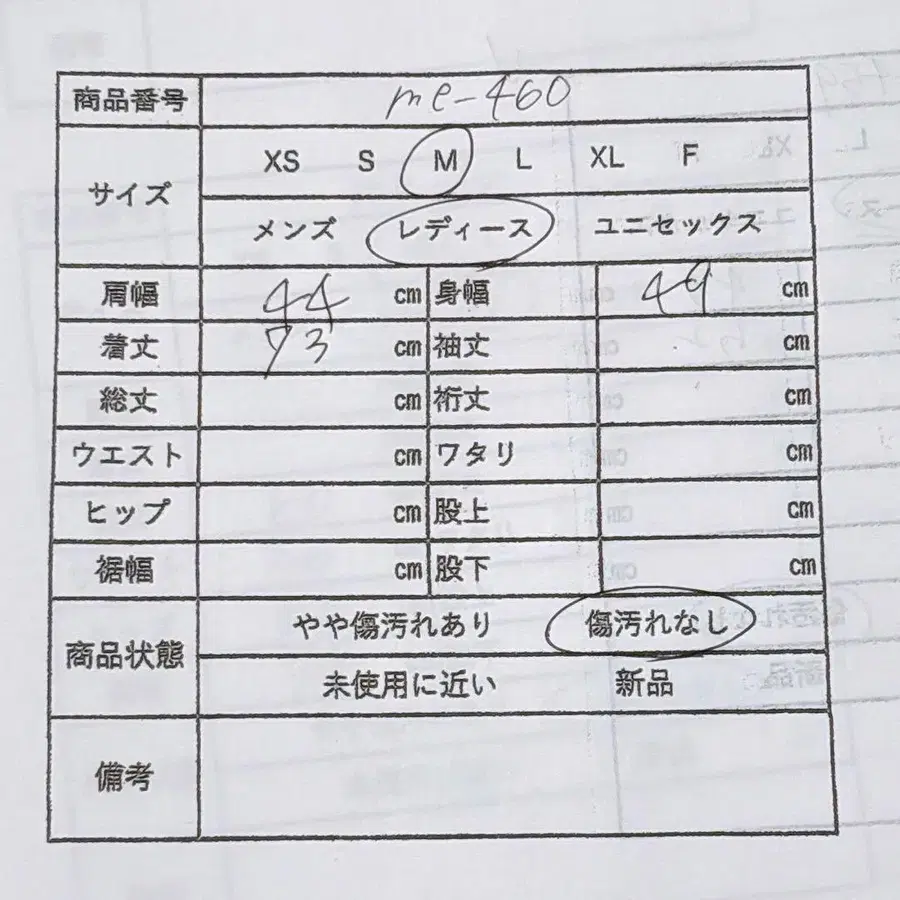 商品番号 me-460
サイズ XS S M L XL F
メンズ レディース ユニセックス
肩幅 44 cm 身幅 49 cm
着丈 73 cm 袖丈 cm
総丈 cm 裄丈 cm
ウエスト cm ワタリ cm
ヒップ cm 股上 cm
裾幅 cm 股下 cm
商品状態 やや傷汚れあり 傷汚れなし
未使用に近い 新品
備考